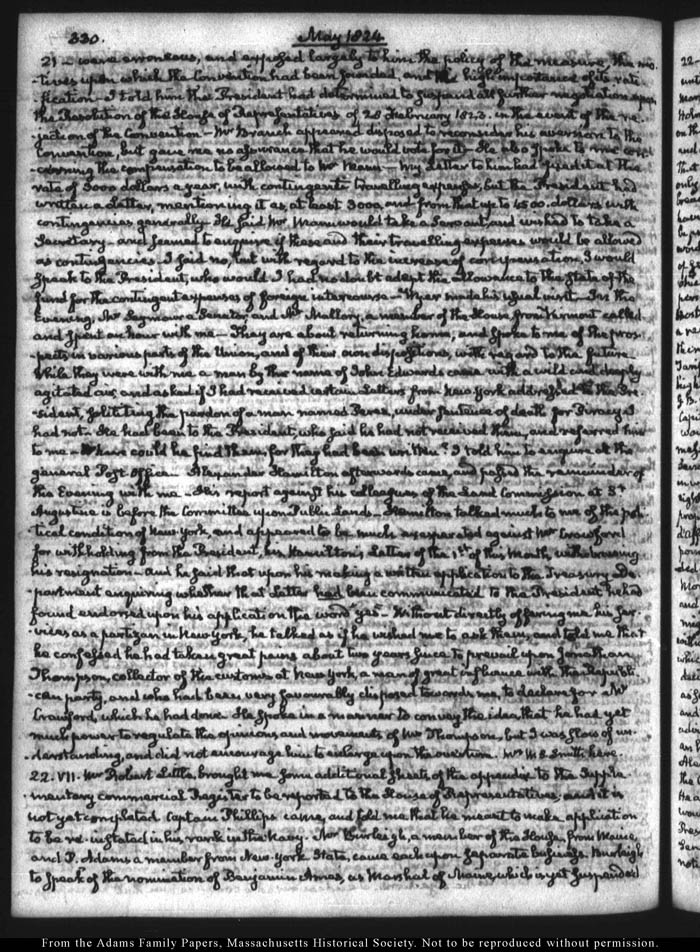 330. May 1824
21 — were erroneous, and exposed largely to him the policy of the measure, the mo-
-tives upon which the Convention had been founded, and the high importance of its rati-
-fication — I told him the President had determined to suspend all further negotiations upon
the Resolution of the House of Representatives of 28 February 1823. in the event of the re-
-jection of the Convention — Mr Branch appeared disposed to reconsider his aversion to the
Convention, but gave me no assurance that he would vote for it — He also spoke to me con-
-cerning the compensation to be allowed to Mr — My Letter to him had fixed it at the
rate of 3000 dollars a year, with contingents travelling expenses, but the President had
written a letter, mentioning it as, at least 3000, and from that up to 4500. dollars with
contingencies generally. He said Mr would take a Servant, and wished to take a
Secretary — and seemed to enquire if these and their travelling expenses would be allowed
as contingencies. I said no, but with regard to the increase of compensation, I would
speak to the President, who would I had no doubt adapt the allowance to the State of the
fund for the contingent expenses of foreign intercourse — Wyer made his usual visit — In the
Evening, Mr Seymour a Senator, and Mr Mallory, a member of the House, from Vermont called
and spent an hour with me — They are about returning home, and spoke to me of the pros-
-pects in various parts of the Union, and of their own dispositions, with regard to the future.
While they were with me a man by the name of John Edwards came with a wild and deeply
agitated air, and asked if I had received certain Letters from New York addressed to the Pre-
-sident, soliciting the pardon of a man named Perez, under sentence of death for Piracy. I
had not — He had been to the President, who said he had not received them, and referred him
to me — Where could he find them, for they had been written? I told him to enquire at the
general Post Office — Alexander Hamilton afterwards came, and passed the remainder of
the Evening with me — His report against his colleagues of the Land Commission at St
Augustine is before the Committee upon Public Lands. Hamilton talked much to me of the poli-
-tical condition of New-York, and appeared to be much exasperated against Mr Crawford
for withholding from the President, his, Hamilton's, Letter of the 1st of this Month, withdrawing
his resignation — And he said that upon his making a written application to the Treasury De-
-partment enquiring whether that Letter had been communicated to the President he had
found endorsed upon his application the word "yes" — Without directly offering me his ser-
-vices as a partizan in New York, he talked as if he wished me to ask them, and told me that
he confessed he had taken great pains about two years since to prevail upon Jonathan
Thompson, collector of the customs at New York, a man of great influence with the Republi-
-can party, and who had been very favourably disposed towards me, to declare for Mr
Crawford, which he had done. He spoke in a manner to convey the idea that he had yet
much power to regulate the opinions, and movements of Mr Thompson, but I was slow of un-
-derstanding, and did not encourage him to enlarge upon the question. Mr W. S. Smith here.
22. VII. Mr Robert Little, brought me some additional sheets of the appendix to the Supple-
-mentary commercial Register to be reported to the House of Representatives, and it is
not yet completed. Captain Phillips came, and told me that he meant to make application
to be re-instated in his rank in the Navy. Mr Burleigh, a member of the House, from Maine,
and P. Adams a member from New-York State, came each upon separate business. Burleigh
to speak of the nomination of Benjamin Ames, as Marshal of Maine, which is yet suspended
From the Adams Family Papers, Massachusetts Historical Society. Not to be reproduced without permission.